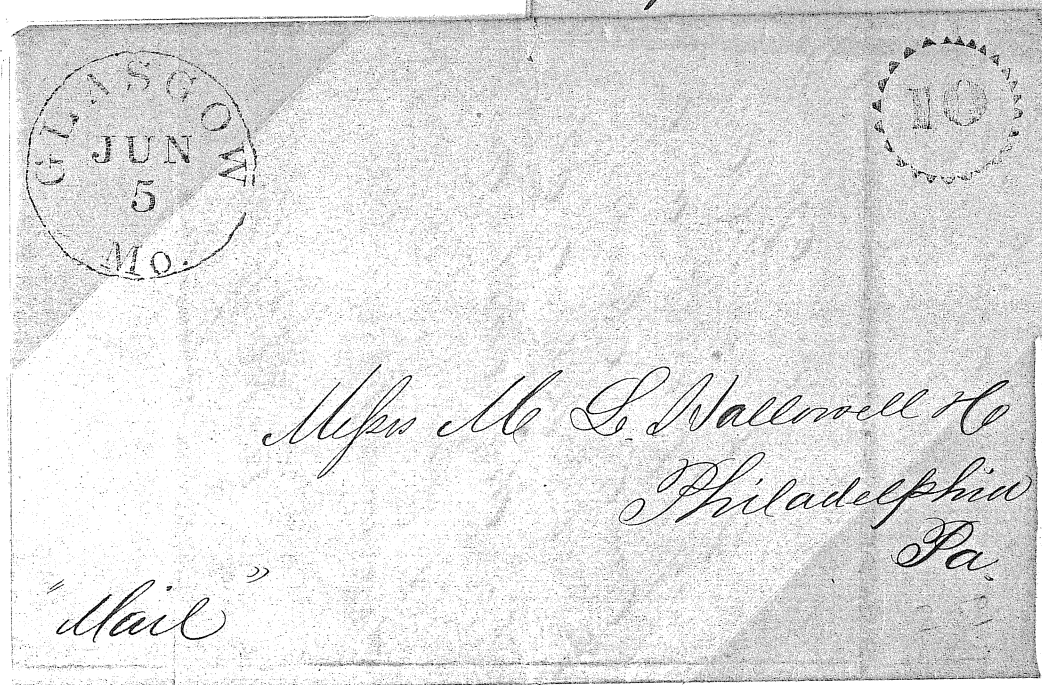 GLASGOW
JUN
5
Mo.
10
Messrs M L. Hallowell & Co
Philadelphia
Pa.
"Mail"